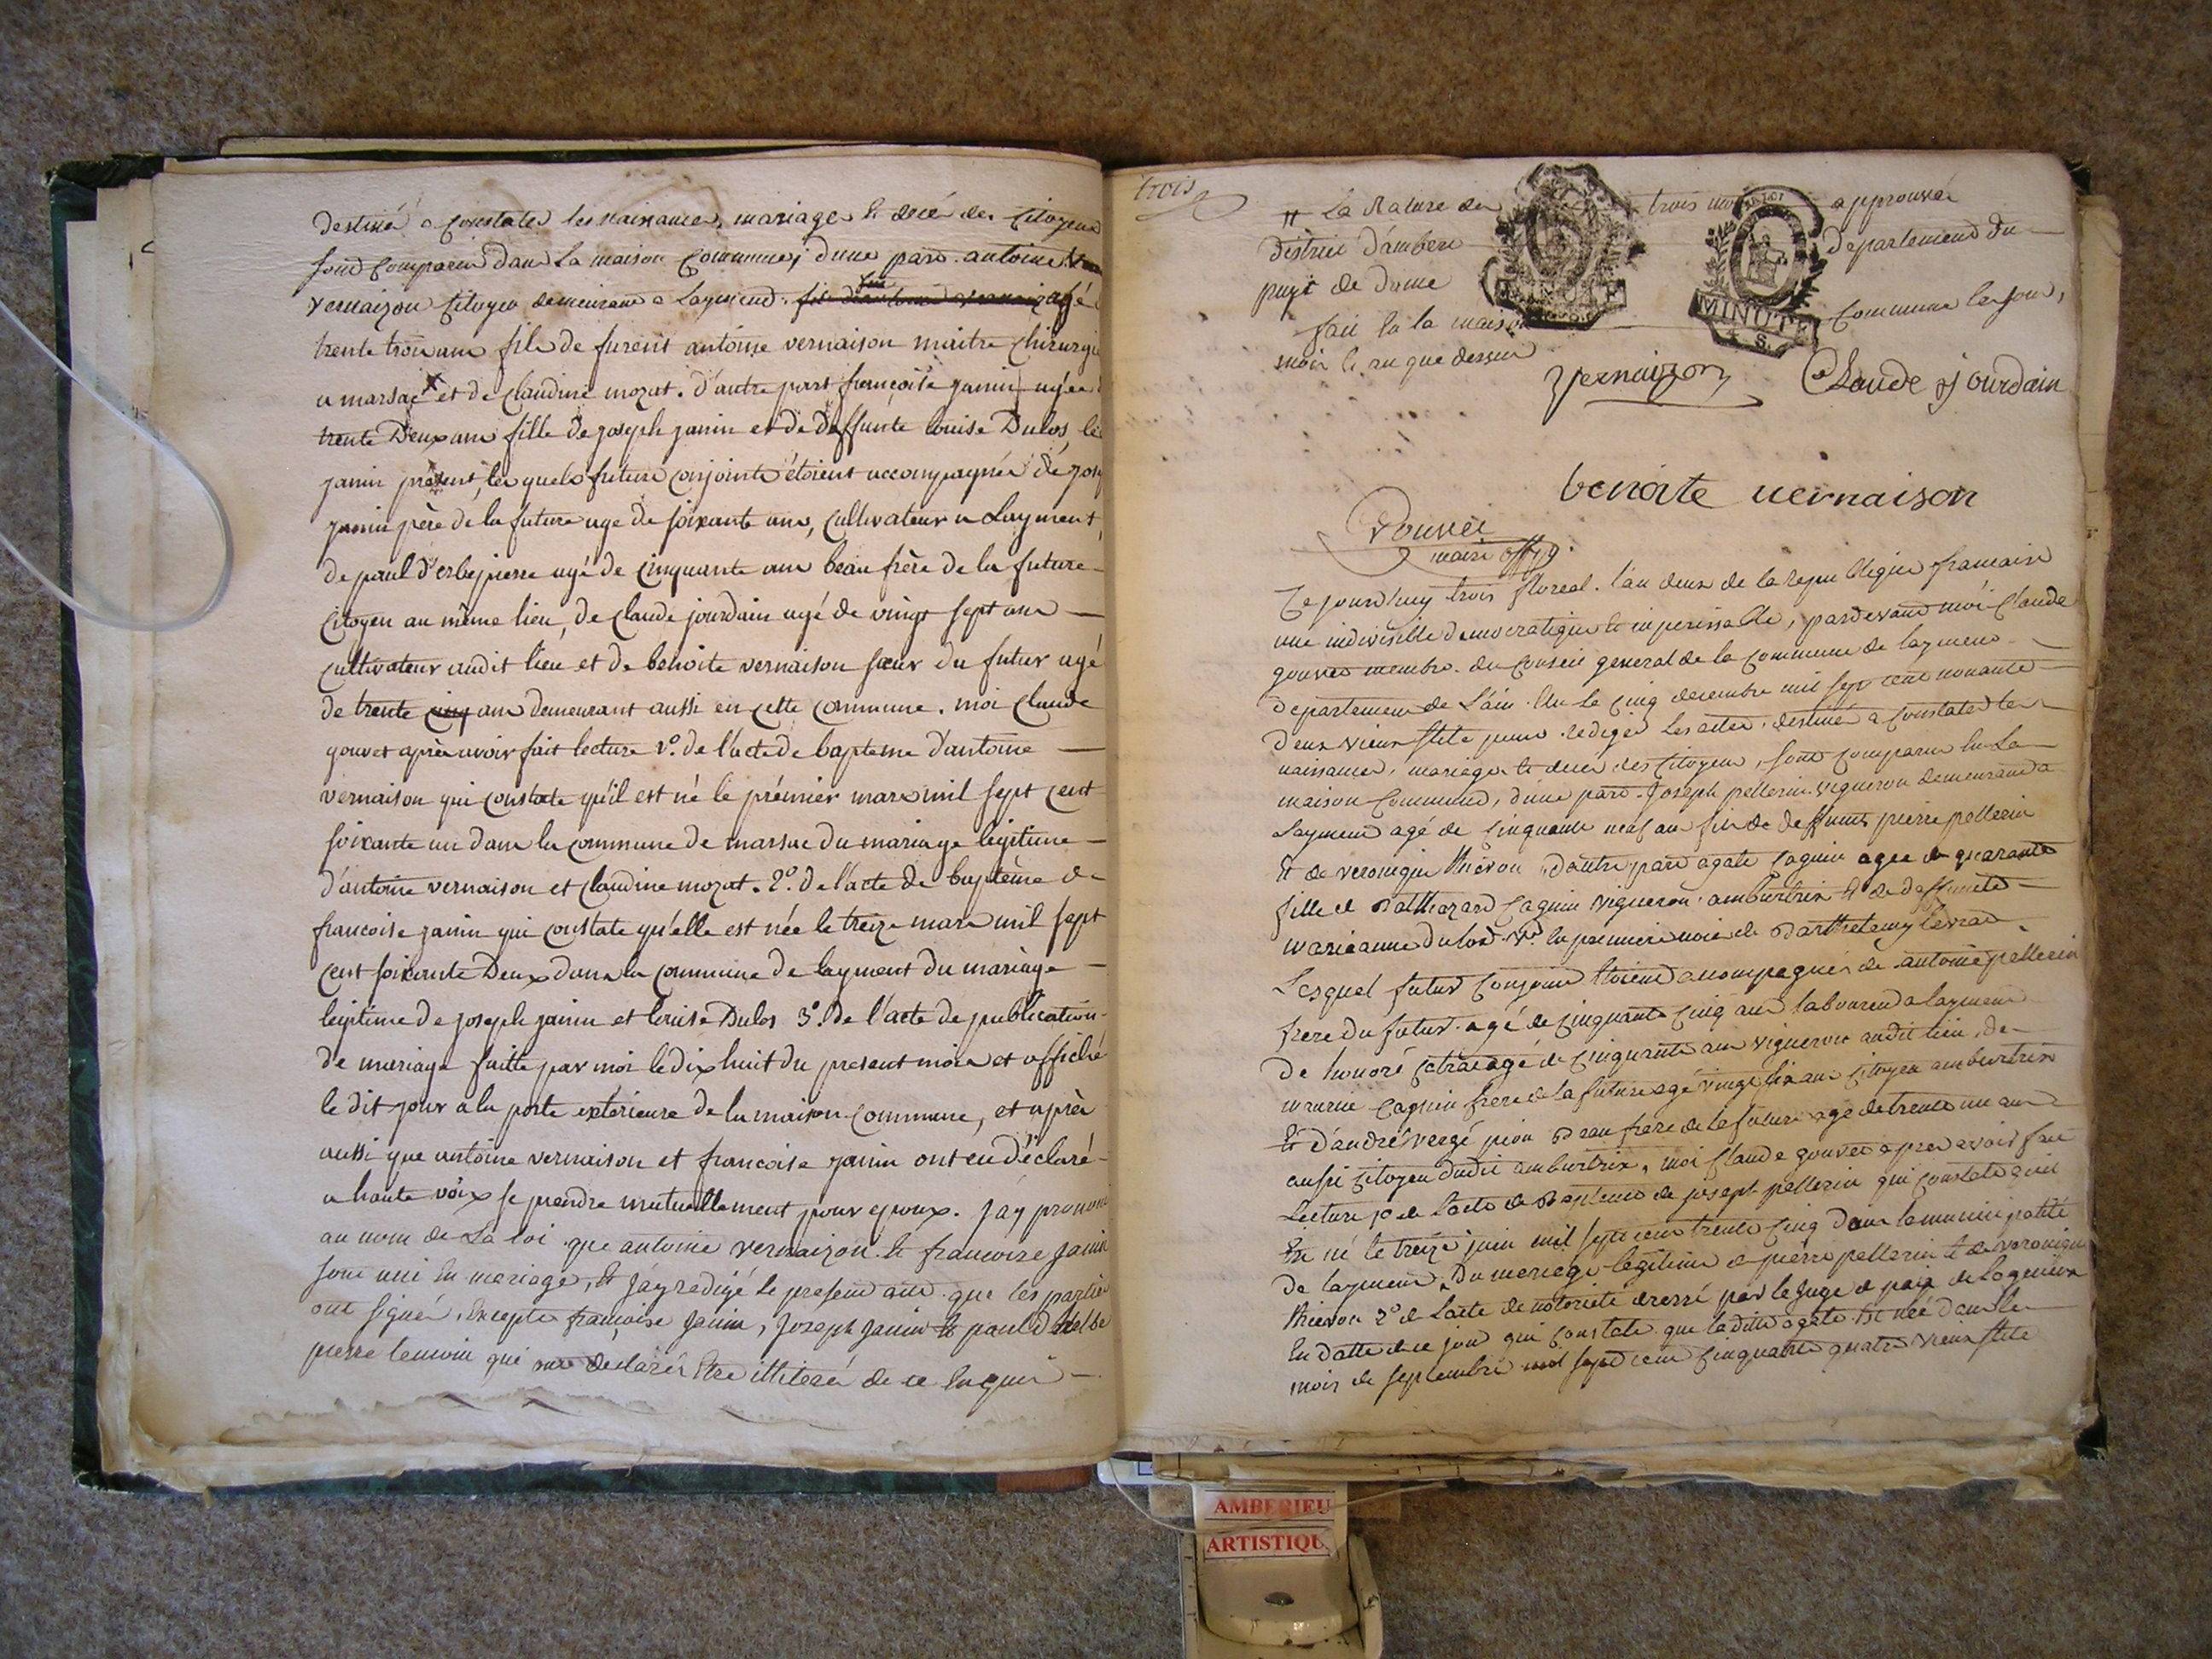 destiné a constater les naissances, mariages et decé des Citoyens
sont comparus dans la maison commune, dune part antoine
vernaizon citoyen demeurant a Layment agé
trente trois ans fils de furent antoine vernaison maitre chirurgi
a marsac et de claudine mozat. d'autre part françoise janin agée
trente Deux ans fille de joseph janin et de deffunte louise Dulos, le
janin present, les quels futurs conjoints étoient accompagnés de jos
janin père de la future age de soixante ans, cultivateur a Layment,
de paul d'erbepierre agé de cinquante ans beau frère de la future
citoyen au même lieu, de claude jourdain agé de vingt sept ans
cultivateur audit lieu et de benoite vernaison sœur du futur agé
de trente cinq ans demeurant aussi en cette commune. moi Claude
gouvet après avoir fait lecture 1º. de l'acte de bapteme d'antoine
vernaison qui constate qu'il est né le prémier mars mil sept cent
soixante un dans la commune de marsac du mariage légitime
d'antoine vernaison et claudine mozat. 2º. de l'acte de baptème de
francoise janin qui constate qu'elle est née le treize mars mil sept
cent soixante Deux dans la commune de layment du mariage
légitime de joseph janin et louise Dulos 3º. de l'acte de publication
de mariage faitte par moi le dix huit du present mois et affiché
le dit jour a la porte extérieure de la maison commune, et après
aussi que antoine vernaison et francoise janin ont eu déclaré
a haute voix se prendre mutuellement pour epoux. j'ay prononcé
au nom de La loi que antoine vernaizon et francoise janin
sont uni en mariage, et j'ay redigé le present acte que les parties
ont signés, Excepté françoise janin, Joseph janin et paul derbe
pierre temoin qui ont declarés Etre illiteré de ce Enquis
trois
La Rature de trois mots approuvée
district d'ambert departement du
puyt de dome
fait En la maison Commune les jour,
mois et an que dessus
Vernaizon Claude jourdain
MINUTE
4. S.
benoite vernaison
Gouvet
maire offi p.
Ce jourdhuy trois floreal. l'an deux de la republique francaise
une indivisible democratique et imperissable, pardevant moi Claude
gouvet membre du conseil general de la commune de layment
departement de L'ain. Elu le cinq decembre mil sept cent nonante
deux vieux stile pour rediger les actes destinés a constater les
naissances, mariages et decés des citoyens, sont comparus En La
maison Commune, dune part Joseph pellerin vigneron demeurant a
Layment agé de cinquante neuf ans fils de deffunts pierre pellerin
et de veronique thievon, d'autre part agate Caguin agee de quarante
fille de Balthazard Caguin vigneron amburtrix et de deffuncte
marieanne dulos Ve En premiere noce de Barthelemy levrat
Lesquel futur conjoint étoient accompagnés de antoine pellerin
frere du futur agé de cinquante cinq ans laboureur a layment
De honoré agé de cinquante ans vigneron audit lieu, de
maurice Caguin frere de la future agé vingt six ans citoyen amburtrix
Et d'andré vergé pion Beau frere de la future agé de trente un ans
aussi citoyen dudit amburtrix, moi Claude gouvet apres avoir fait
Lecture 1º de l'acte de Bapteme de joseph pellerin qui constate qu'il
Est né le treize juin mil sept cent trente cinq dans la municipalité
de layment, Du mariage legitime de pierre pellerin et de veronique
thievon 2º de l'acte de notorieté dressé par le juge de paix de lagnieux
En datte de ce jour qui constate que la ditte agate Est née dans le
mois de septembre mil sept cent cinquante quatre vieux stile
AMBERIEU
ARTISTIQU